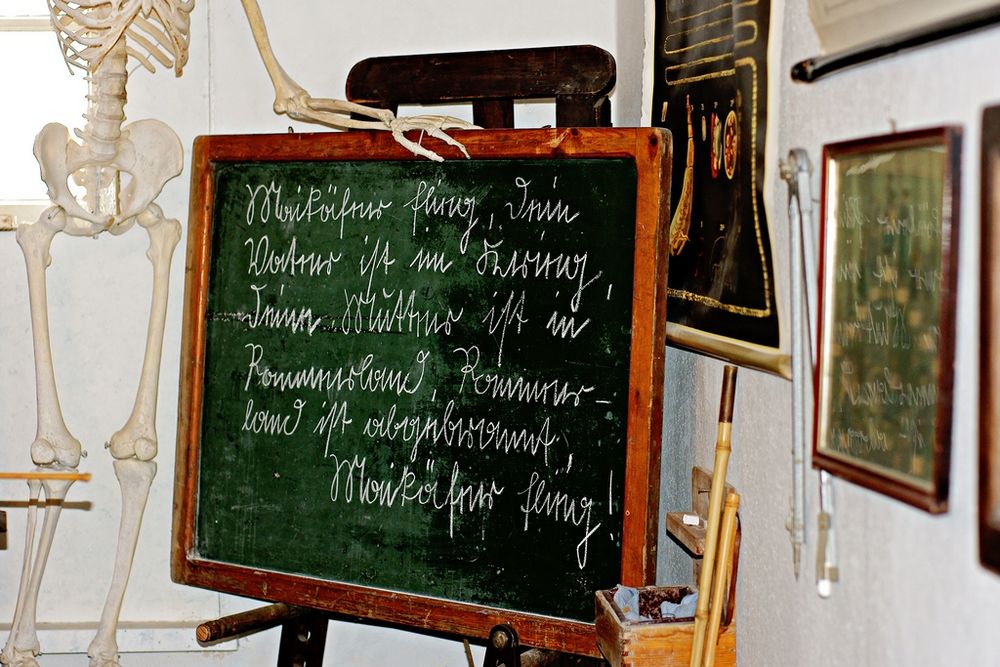 Maikäfer flieg, Dein
Vater ist im Krieg,
Deine Mutter ist in
Pommerland, Pommer-
land ist abgebrannt,
Maikäfer flieg!